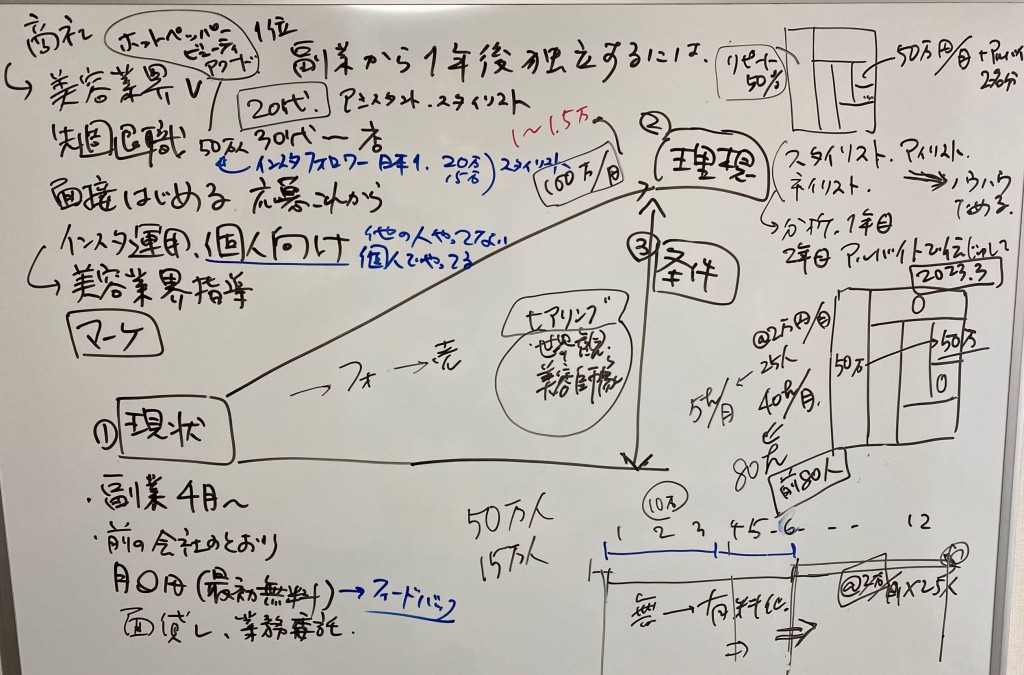 商社
ホットペッパー
ビューティ
アワード
1位
副業から1年後独立するには、
美容業界
20代. アシスタント.スタイリスト
先週退職 50万人 30代〜店
インスタフォロワー日本1. 20万
15万
スタイリスト
面接はじめる 応募これから
インスタ運用、個人向け
他の人やってない
個人でやってる
美容業界指導
マーケ
1〜1.5万
100万/月
② 理想
③ 条件
ヒアリング
世界観.
美容師像
→ フォ → 売
① 現状
・副業 4月〜
・前の会社のとおり
月〇円 (最初無料) → フィードバック
面貸し、業務委託.
50万人
15万人
リピート
50%
50万円/月
スタイリスト. アイリスト.
ネイリスト.
ノウハウ
ためる.
→ 分析. 1年目
2年目 アルバイトで
2023.3
0
@2万円/月
25人
50万
50万
0
5h/月
40h/月.
80h
前80人
10万
1 2 3 4 5 - 6 - - - 12
無 → 有料化.
⇒
@2万/月×25人